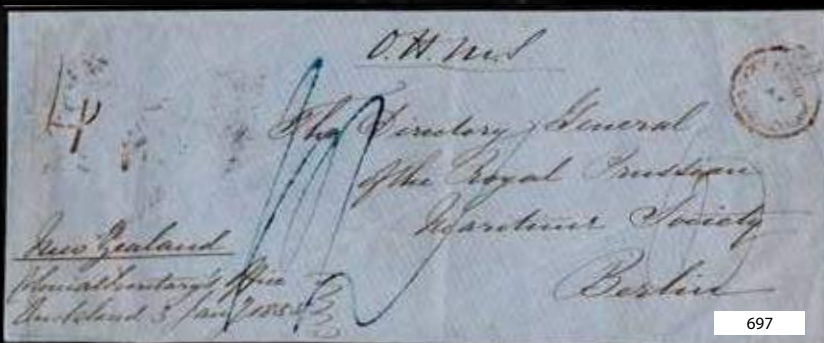 O.H.M.S
The Directory General
of the Royal Prussian
Maritime Society
Berlin
New Zealand
Colonial Secretary's Office
Auckland 3 Jany
697